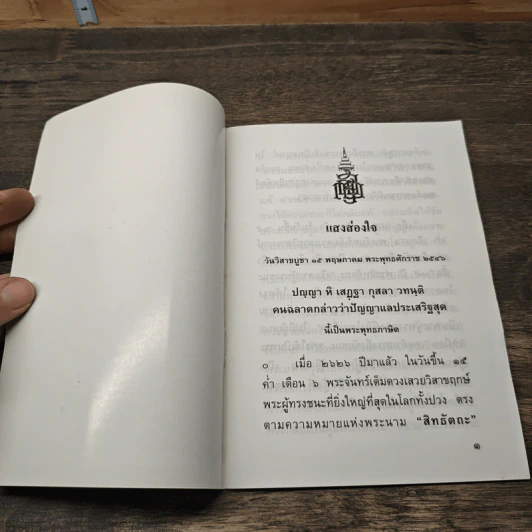 แสงส่องใจ
วันวิสาขบูชา ๑๕ พฤษภาคม พระพุทธศักราช ๒๕๔๖
ปญฺญา หิ เสฏฺฐา กุสลา วทนฺติ
คนฉลาดกล่าวว่าปัญญาแลประเสริฐสุด
นี้เป็นพระพุทธภาษิต
๐ เมื่อ ๒๖๒๖ ปีมาแล้ว ในวันขึ้น ๑๕
ค่ำ เดือน ๖ พระจันทร์เต็มดวงเสวยวิสาขฤกษ์
พระผู้ทรงชนะที่ยิ่งใหญ่ที่สุดในโลกทั้งปวง ตรง
ตามความหมายแห่งพระนาม “สิทธัตถะ”
๑